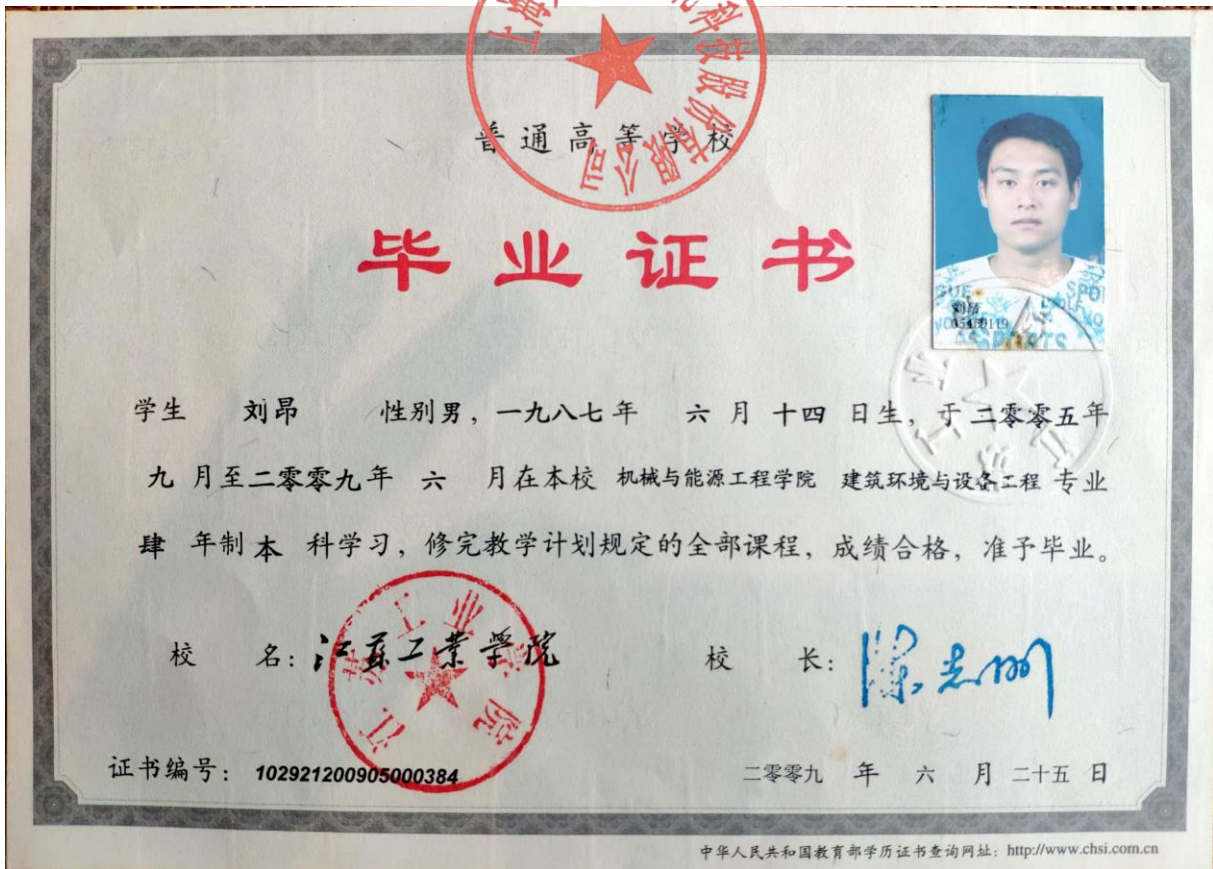 普通高等学校
毕业证书
刘昂
学生 刘昂 性别男，一九八七年 六 月 十四 日生，于二零零五年
九 月至二零零九年 六 月在本校 机械与能源工程学院 建筑环境与设备工程 专业
肆 年制 本 科学习，修完教学计划规定的全部课程，成绩合格，准予毕业。
校 名：江苏工业学院
江苏工业学院
校 长：
证书编号：102921200905000384
二零零九 年 六 月 二十五 日
中华人民共和国教育部学历证书查询网址：http://www.chsi.com.cn
上海 科技股份有限公司